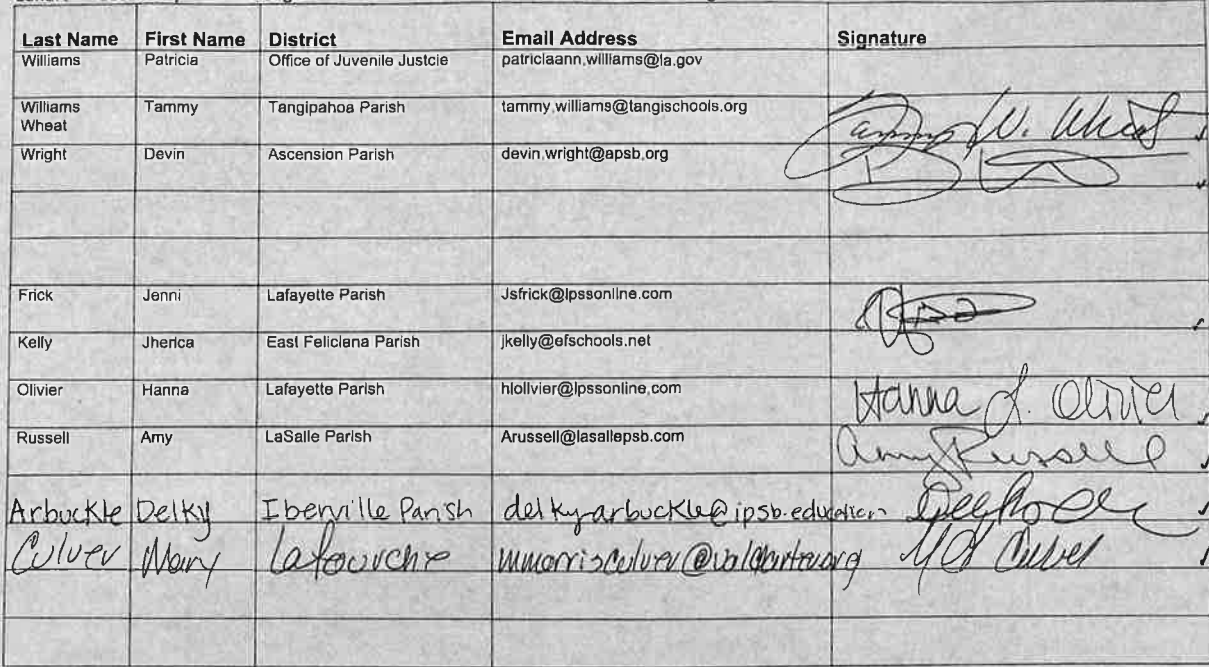 Last Name First Name District Email Address Signature
Williams Patricia Office of Juvenile Justcie patriciaann.williams@la.gov
Williams Wheat Tammy Tangipahoa Parish tammy.williams@tangischools.org Tammy W. Wheat
Wright Devin Ascension Parish devin.wright@apsb.org
Frick Jenni Lafayette Parish Jsfrick@lpssonline.com
Kelly Jherica East Feliciana Parish jkelly@efschools.net
Olivier Hanna Lafayette Parish hlolivier@lpssonline.com Hanna L. Olivier
Russell Amy LaSalle Parish Arussell@lasallepsb.com Amy Russell
Arbuckle Delky Iberville Parish delkyarbuckle@ipsb.education
Culver Mary Lafourche